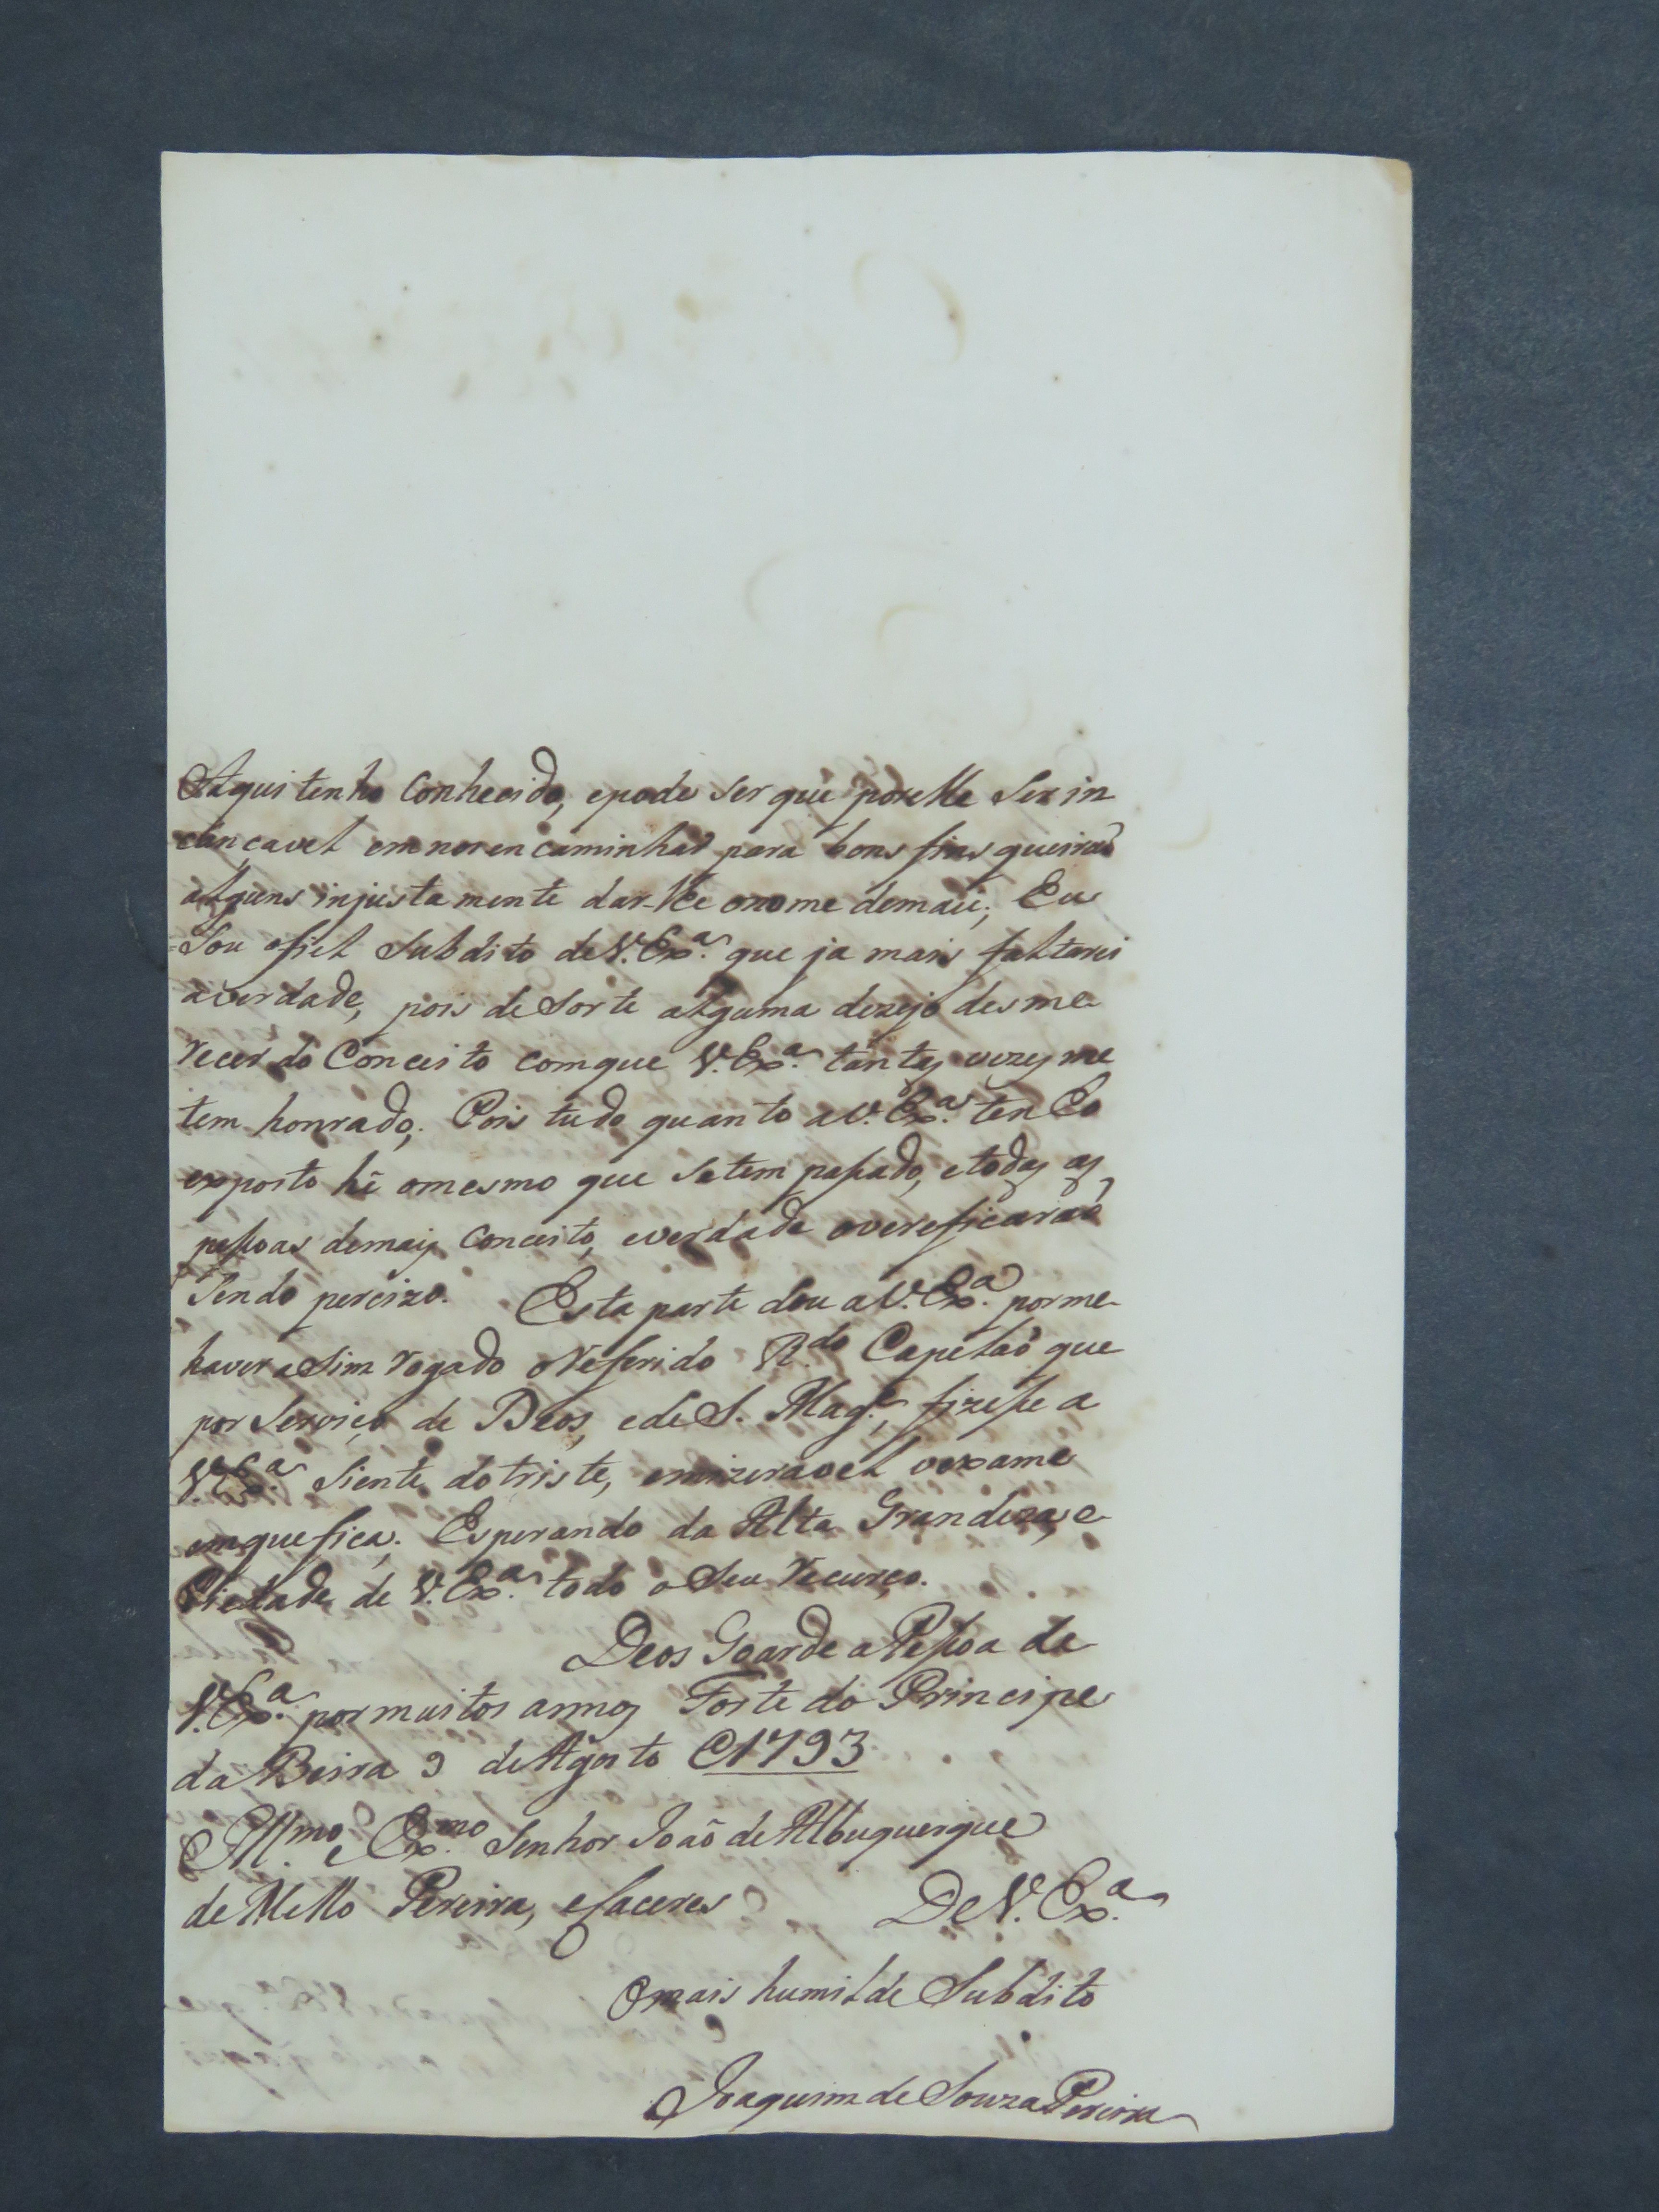 Aqui tenho Conhecido, epode ser que porelle Ser in
cançavel em nos en caminhar para bons fins queiraõ
alguns injusta mente dar-lhe onome demaú; Eu
Sou ofiel Subdito de V. Exª. que ja mais faltarei
averdade, pois de Sorte alguma dezejo des me
recer do Conceito comque V. Exª. tantas vezes me
tem honrado; Pois tudo quanto a V. Exª. tenho
exposto hé omesmo que Setem passado, etodas as
pessoas demais Conceito, everdade overeficaraõ
Sendo percizo. Esta parte dou a V. Exª. por me
haver aSim rogado oReferido R.do Capelaõ que
por Serviço de Deos, ede S. Mag.e, fizesse a
V. Exª. Siente do triste, emizeravel vexame
emque fica; Esperando da Alta Grandeza, e
Piedade de V. Exª. todo o Seu recurço.
Deos Goarde aPessoa de
V. Exª. por muitos annos Forte do Principe
da Beira 9 de Agosto @1793
Ill.mo e Ex.mo Senhor Joaõ de Albuquerque
de Mello Pereira, eCaceres De V. Exª.
Omais humilde Subdito
Joaquim de Souza Pereira